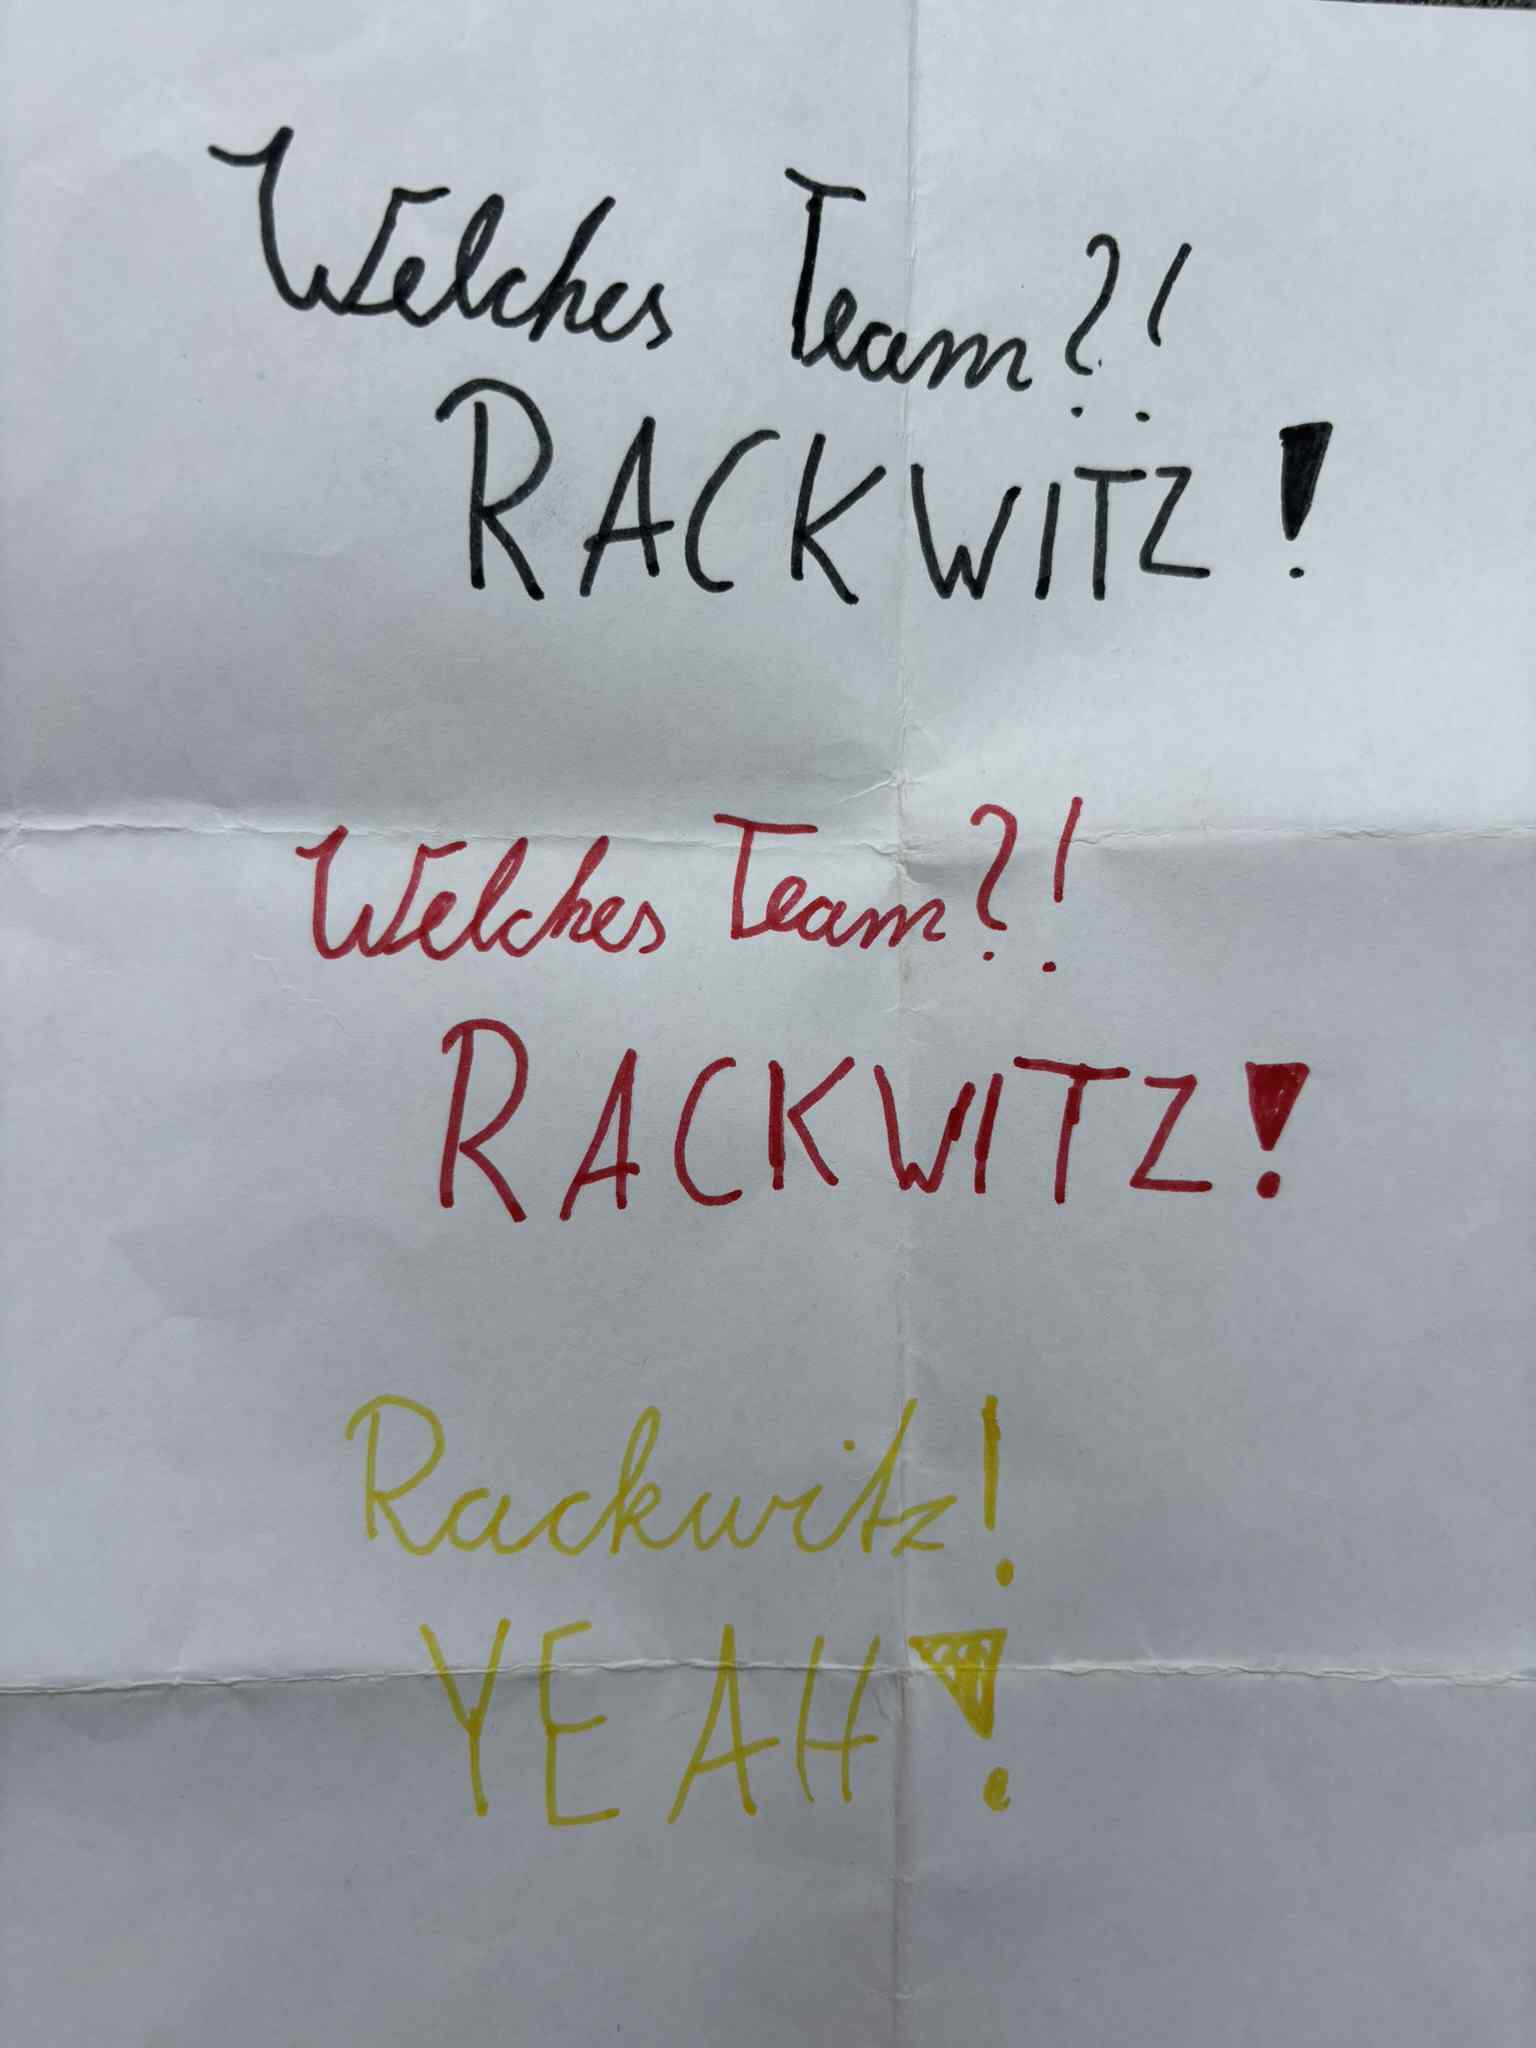 Welches Team?!
RACKWITZ!
Welches Team?!
RACKWITZ!
Rackwitz!
YEAH!